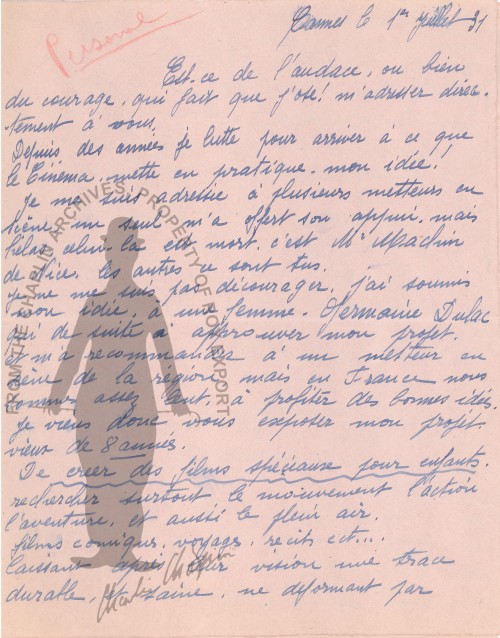 Personal
Cannes le 1er Juillet 31
Est-ce de l'audace, ou bien
du courage, qui fait que j'ose! m'adresser direc-
tement à vous.
Depuis des années je lutte pour arriver à ce que
le Cinéma, mette en pratique, mon idée!
Je me suis adressée à plusieurs metteurs en
scène, un seul m'a offert son appui, mais
hélas celui-là est mort, c'est Mr Machin
de Nice. les autres ce sont tus.
Je ne me suis pas découragée, j'ai soumis
mon idée, à une femme. Germaine Dulac
qui de suite a approuver mon projet.
m'a recommandée à un metteur en
scène de la région, mais en France nous
sommes assez lent, à profiter des bonnes idées.
Je viens donc vous exposer mon projet
vieux de 8 années.
De créer des films spéciaux pour enfants.
rechercher surtout le mouvement l'action
l'aventure, et aussi le plein air.
films comiques, voyages, recits ect...
laissant après leur vision une trace
durable, et saine, ne déformant pas
FROM THE CHAPLIN ARCHIVES. PROPERTY OF ROY EXPORT
Charlie Chaplin